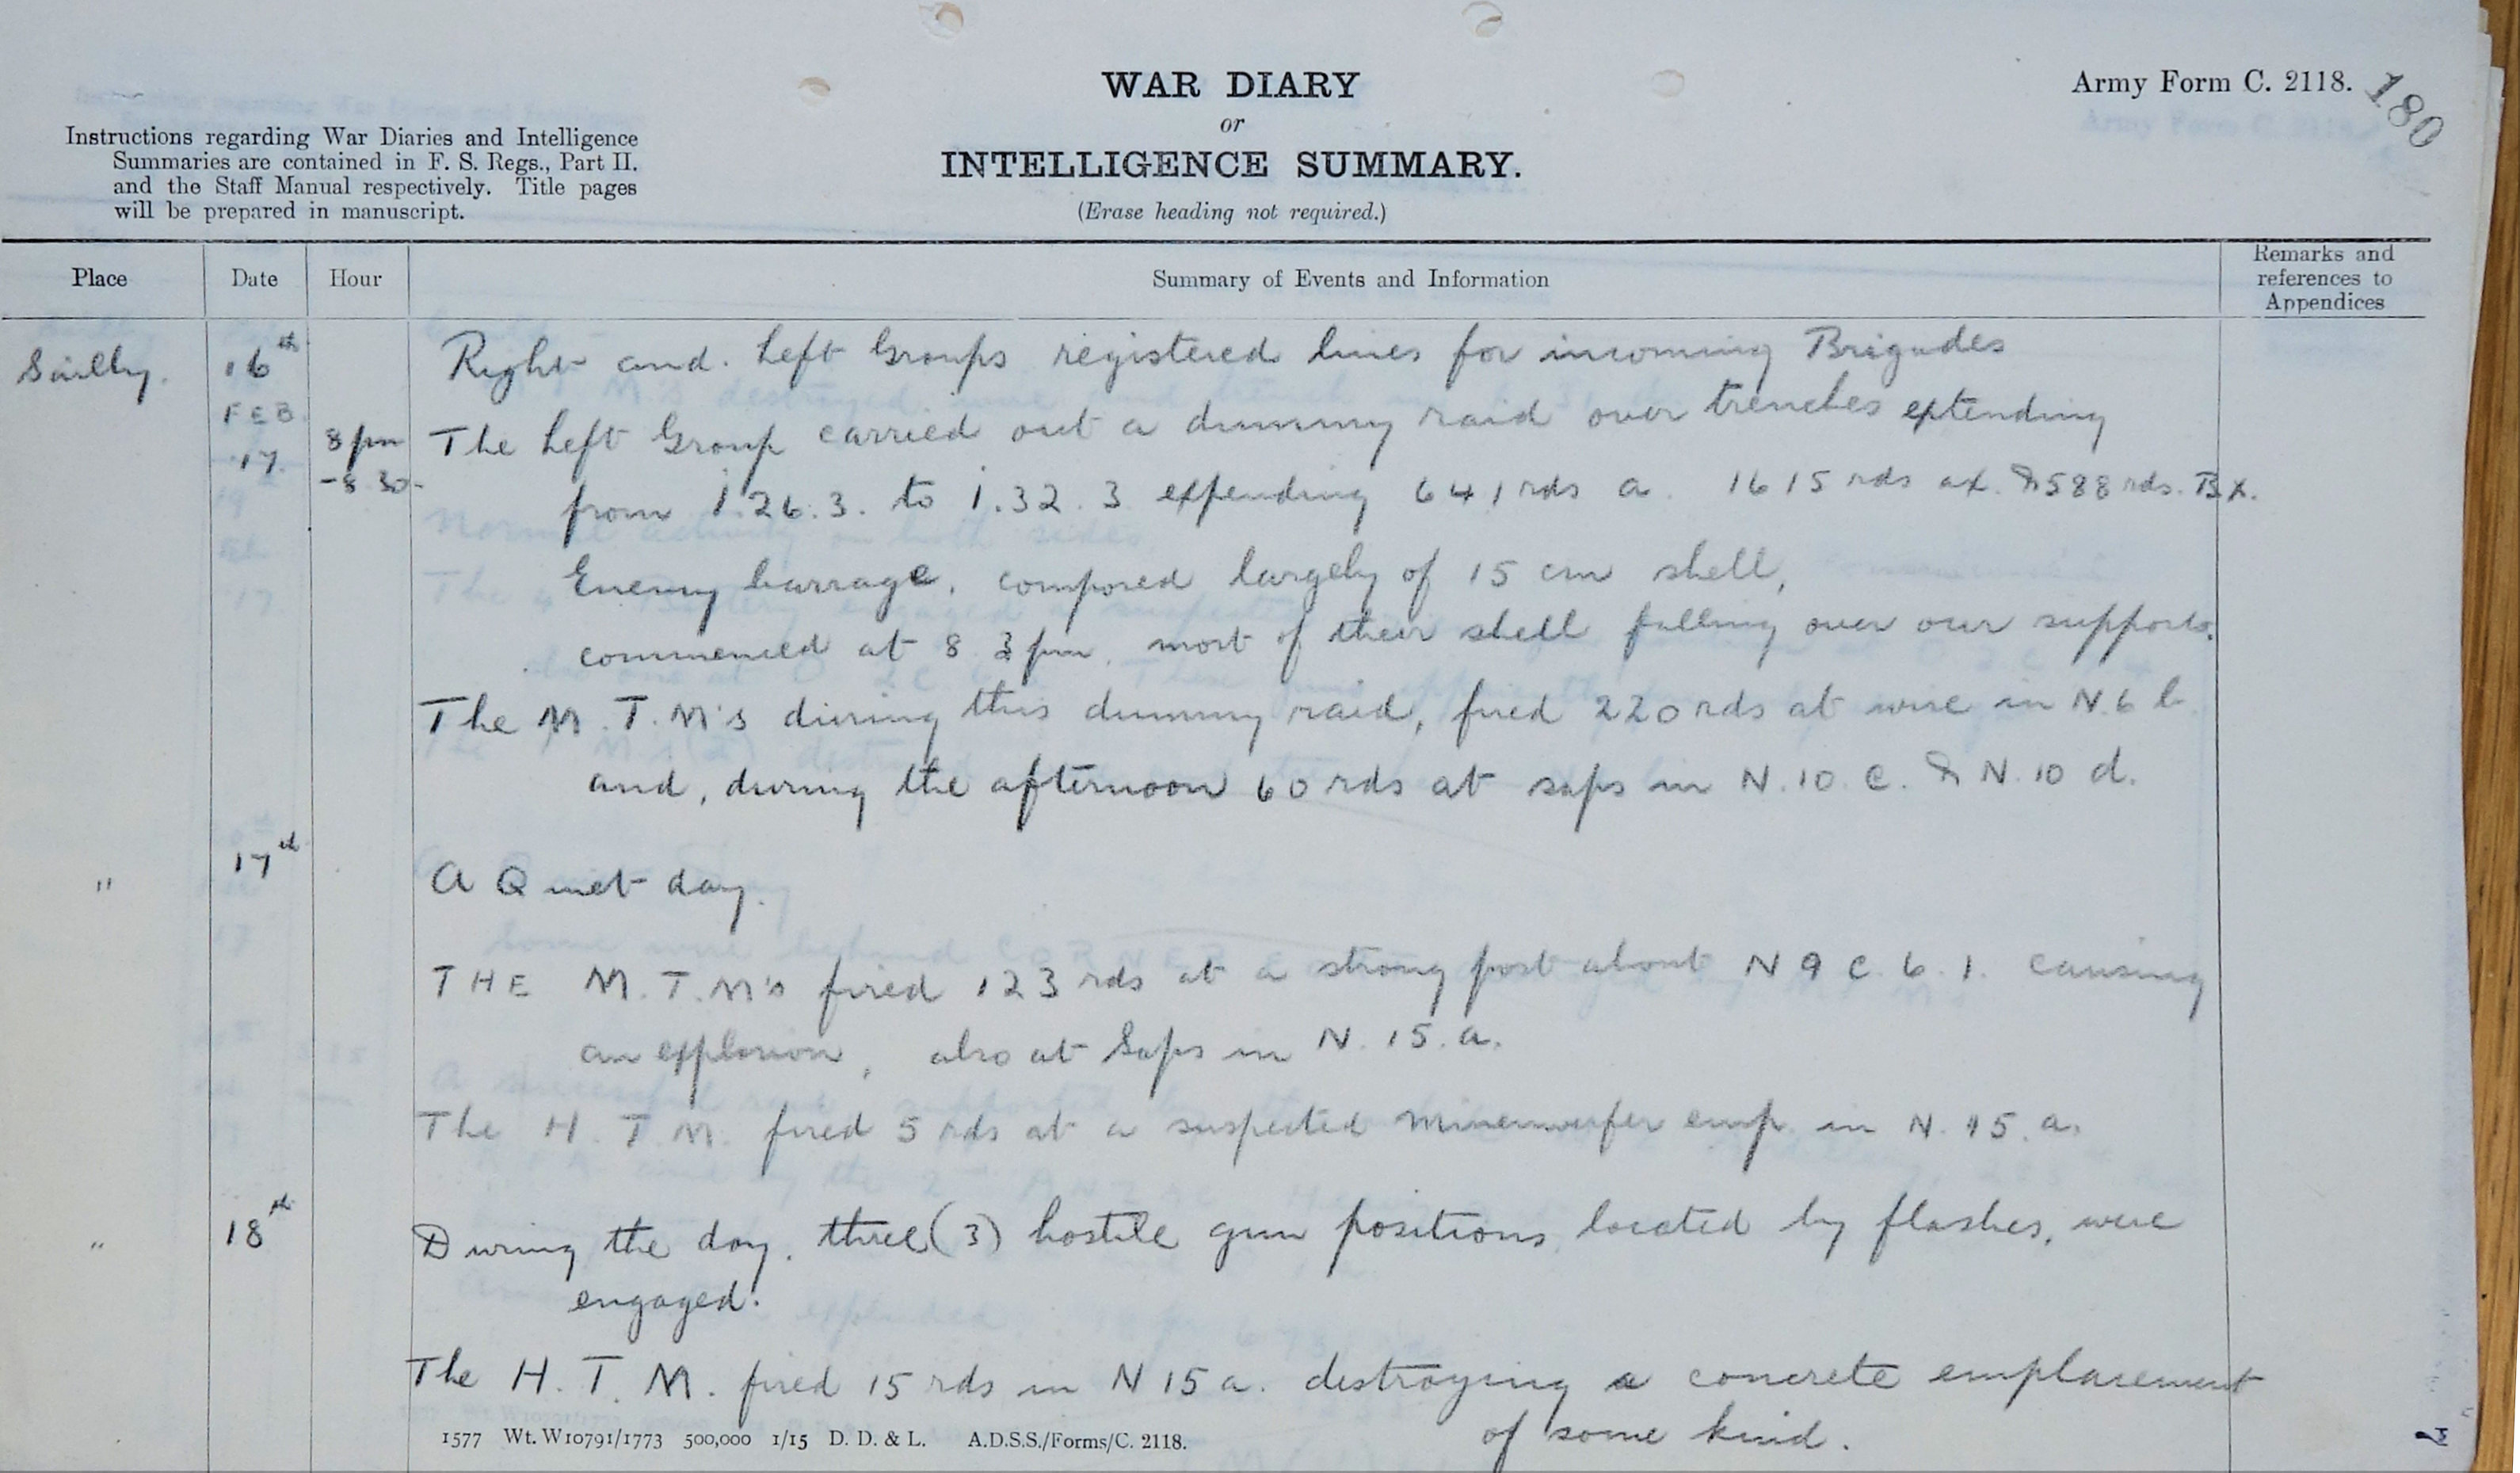 WAR DIARY
or
INTELLIGENCE SUMMARY.
(Erase heading not required.)
Army Form C. 2118.
180
Instructions regarding War Diaries and Intelligence
Summaries are contained in F. S. Regs., Part II.
and the Staff Manual respectively. Title pages
will be prepared in manuscript.
Place Date Hour Summary of Events and Information Remarks and references to Appendices
Sailly. 16th Right and. Left Groups registered lines for incoming Brigades
FEB. 17. 8 pm The Left Group carried out a dummy raid over trenches extending
-8.30- from 1.26.3. to 1.32.3 expending 641 rds a. 1615 rds ax. & 588 rds. Bx.
Enemy barrage, composed largely of 15 cm shell,
commenced at 8 3 pm, most of their shell falling over our supports.
The M.T.M's during this dummy raid, fired 220 rds at wire in N.6 b
and, during the afternoon 60 rds at saps in N.10.C. & N.10 d.
" 17th A Quiet day.
THE M.T.M's fired 123 rds at a strong post about N 9 C.6.1. causing
an explosion, also at Saps in N.15.a.
The H.T.M. fired 5 rds at a suspected Minenwerfer emp. in N.15.a.
" 18th During the day. three (3) hostile gun positions located by flashes, were
engaged.
The H.T.M. fired 15 rds in N 15 a. destroying a concrete emplacement
of some kind.
1577 Wt. W10791/1773 500,000 1/15 D. D. & L. A.D.S.S./Forms/C. 2118.